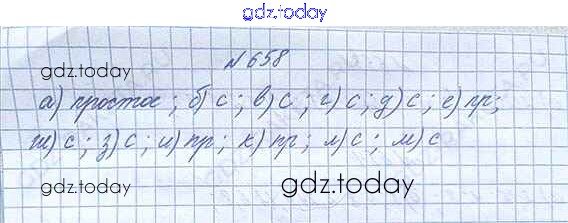 gdz.today
N 658
gdz.today
а) простое; б) с; в) с; г) с; д) с; е) пр;
ж) с; з) с; и) пр; к) пр; л) с; м) с
gdz.today
gdz.today